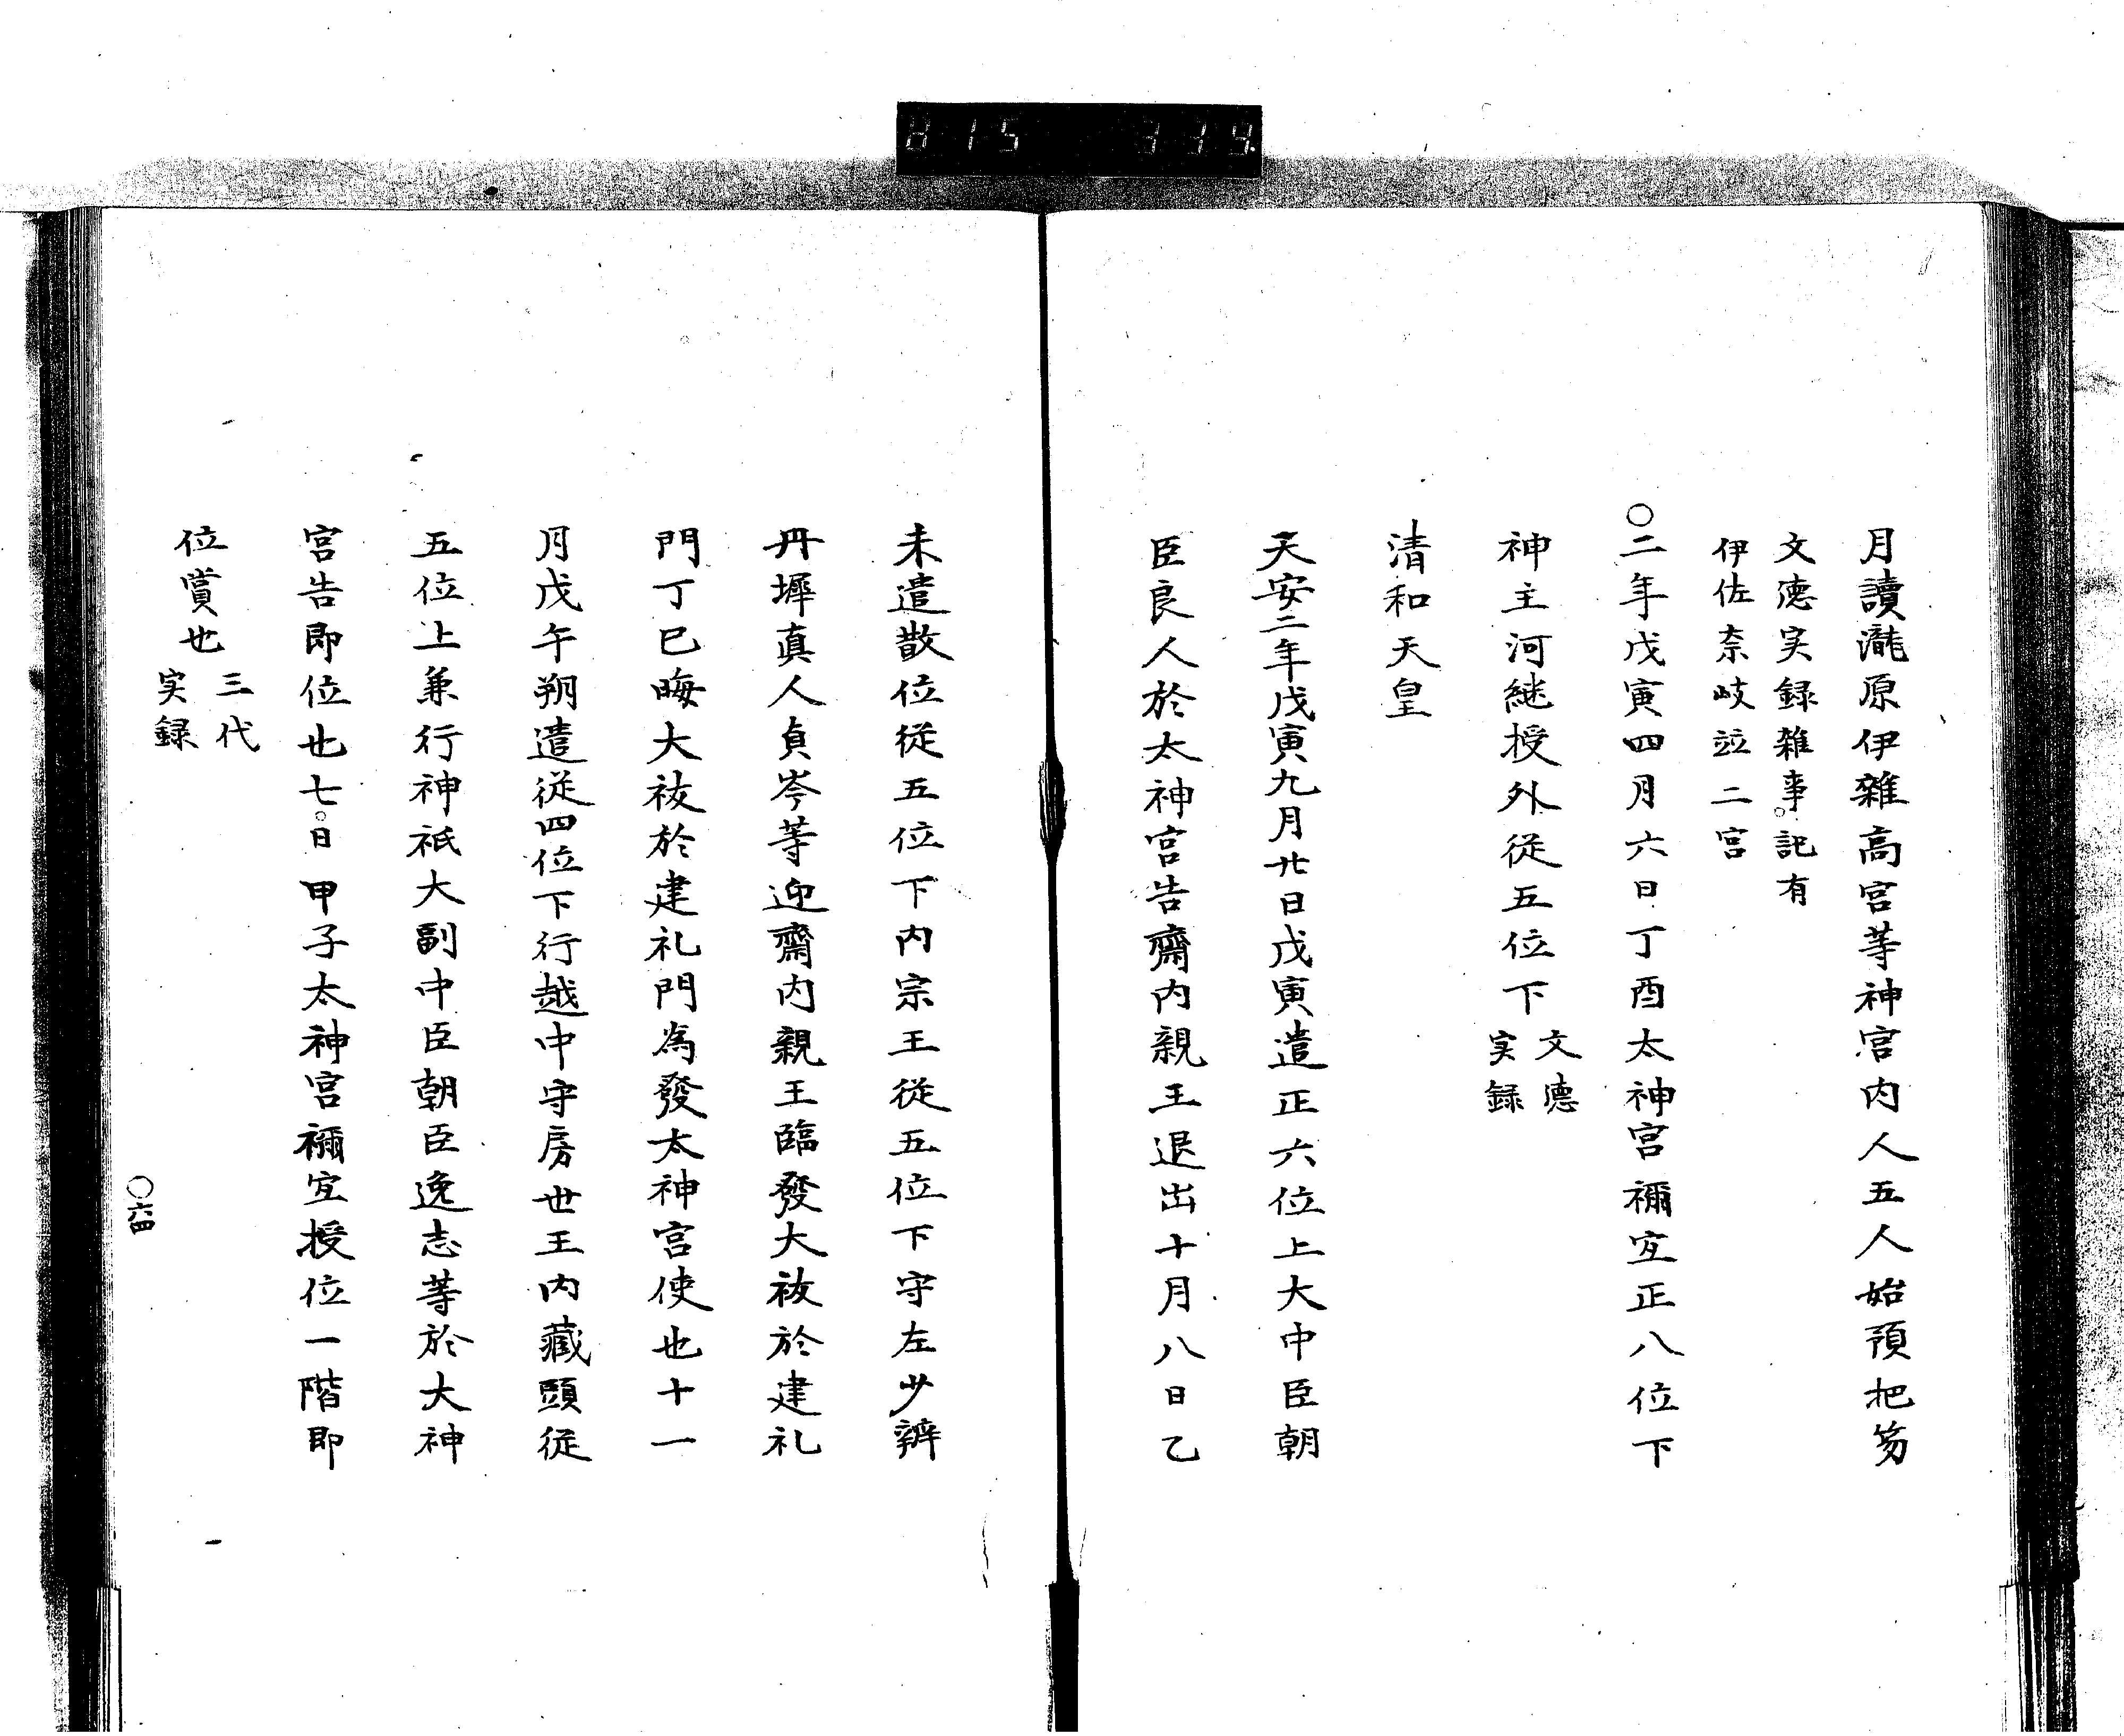 815 339
月讀瀧原伊雜高宮等神宮内人五人始預把笏
文徳実録雑事。記有
伊佐奈岐並二宮
〇二年戊寅四月六日丁酉太神宮禰宜正八位下
神主河継授外従五位下 文徳実録
清和天皇
天安二年戊寅九月廿日戊寅遣正六位上大中臣朝
臣良人於太神宮告齋内親王退出十月八日乙
未遣散位従五位下内宗王従五位下守左少辨
丹墀真人貞岑等迎齋内親王臨發大祓於建礼
門丁巳晦大祓於建礼門為發太神宮使也十一
月戊午朔遣従四位下行越中守房世王内藏頭従
五位上兼行神祇大副中臣朝臣逸志等於大神
宮告即位也七。日甲子太神宮禰宜授位一階即
位賞也 三代実録
〇六四